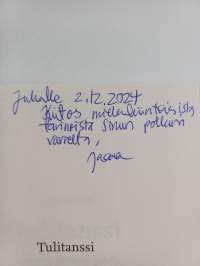 Juhalle 2.12.2024
Kiitos mielenkiintoisista
tarinoista Sinun polkusi
varrelta,
Tulitanssi